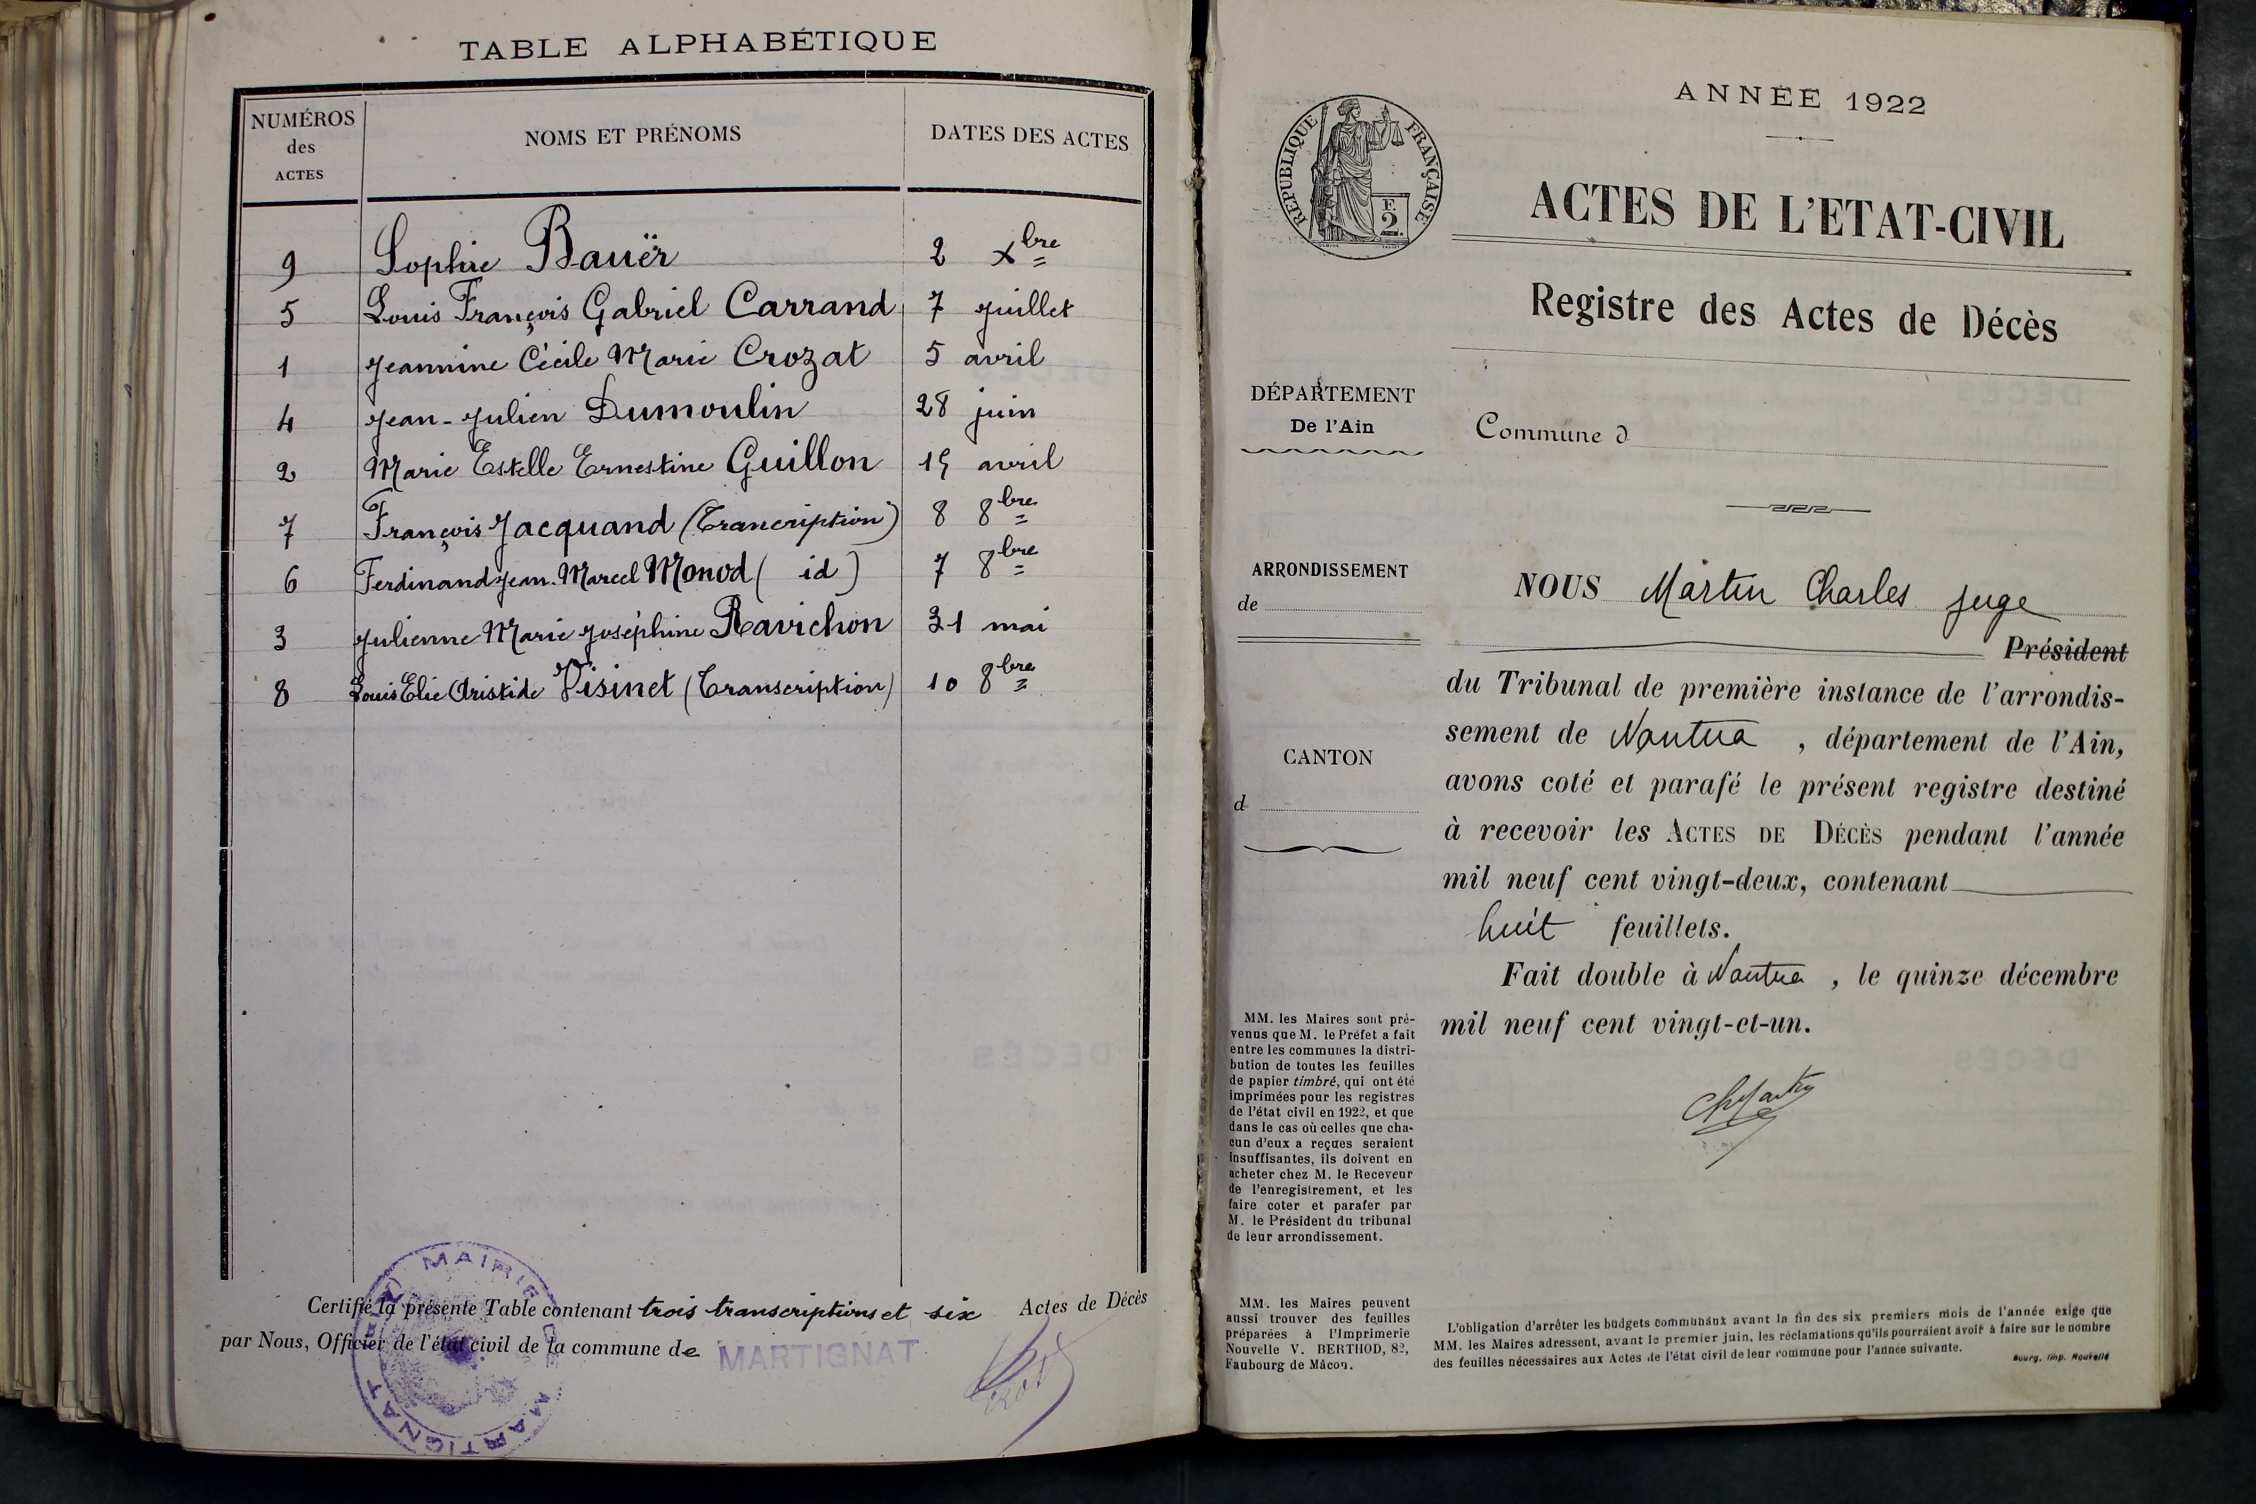 TABLE ALPHABÉTIQUE
NUMÉROS des ACTES NOMS ET PRÉNOMS DATES DES ACTES
9 Sophie Bauër 2 Xbre
5 Louis François Gabriel Carrand 7 juillet
1 Jeannine Cécile Marie Crozat 5 avril
4 Jean-Julien Dumoulin 28 juin
2 Marie Estelle Ernestine Guillon 15 avril
7 François Jacquand (Trancription) 8 8bre
6 Ferdinand Jean-Marcel Monod (id) 7 8bre
3 Julienne Marie Joséphine Ravichon 31 mai
8 Louis Elie Aristide Visinet (Transcription) 10 8bre
Certifié la présente Table contenant trois transcriptions et six Actes de Décès
par Nous, Officier de l'état civil de la commune de MARTIGNAT
MAIRIE DE MARTIGNAT (AIN)
ANNÉE 1922
RÉPUBLIQUE FRANÇAISE
F. 2.
ACTES DE L'ETAT-CIVIL
Registre des Actes de Décès
DÉPARTEMENT
De l'Ain
Commune d
ARRONDISSEMENT
de
CANTON
d
NOUS Martin Charles juge
Président
du Tribunal de première instance de l'arrondis-
sement de Nantua, département de l'Ain,
avons coté et parafé le présent registre destiné
à recevoir les ACTES DE DÉCÈS pendant l'année
mil neuf cent vingt-deux, contenant
huit feuillets.
Fait double à Nantua, le quinze décembre
mil neuf cent vingt-et-un.
MM. les Maires sont pré-
venus que M. le Préfet a fait
entre les communes la distri-
bution de toutes les feuilles
de papier timbré, qui ont été
imprimées pour les registres
de l'état civil en 1922, et que
dans le cas où celles que cha-
cun d'eux a reçues seraient
insuffisantes, ils doivent en
acheter chez M. le Receveur
de l'enregistrement, et les
faire coter et parafer par
M. le Président du tribunal
de leur arrondissement.
MM. les Maires peuvent
aussi trouver des feuilles
préparées à l'Imprimerie
Nouvelle V. BERTHOD, 82,
Faubourg de Mâcon.
L'obligation d'arrêter les budgets communaux avant la fin des six premiers mois de l'année exige que
MM. les Maires adressent, avant le premier juin, les réclamations qu'ils pourraient avoir à faire sur le nombre
des feuilles nécessaires aux Actes de l'état civil de leur commune pour l'année suivante.
Bourg, Imp. Nouvelle